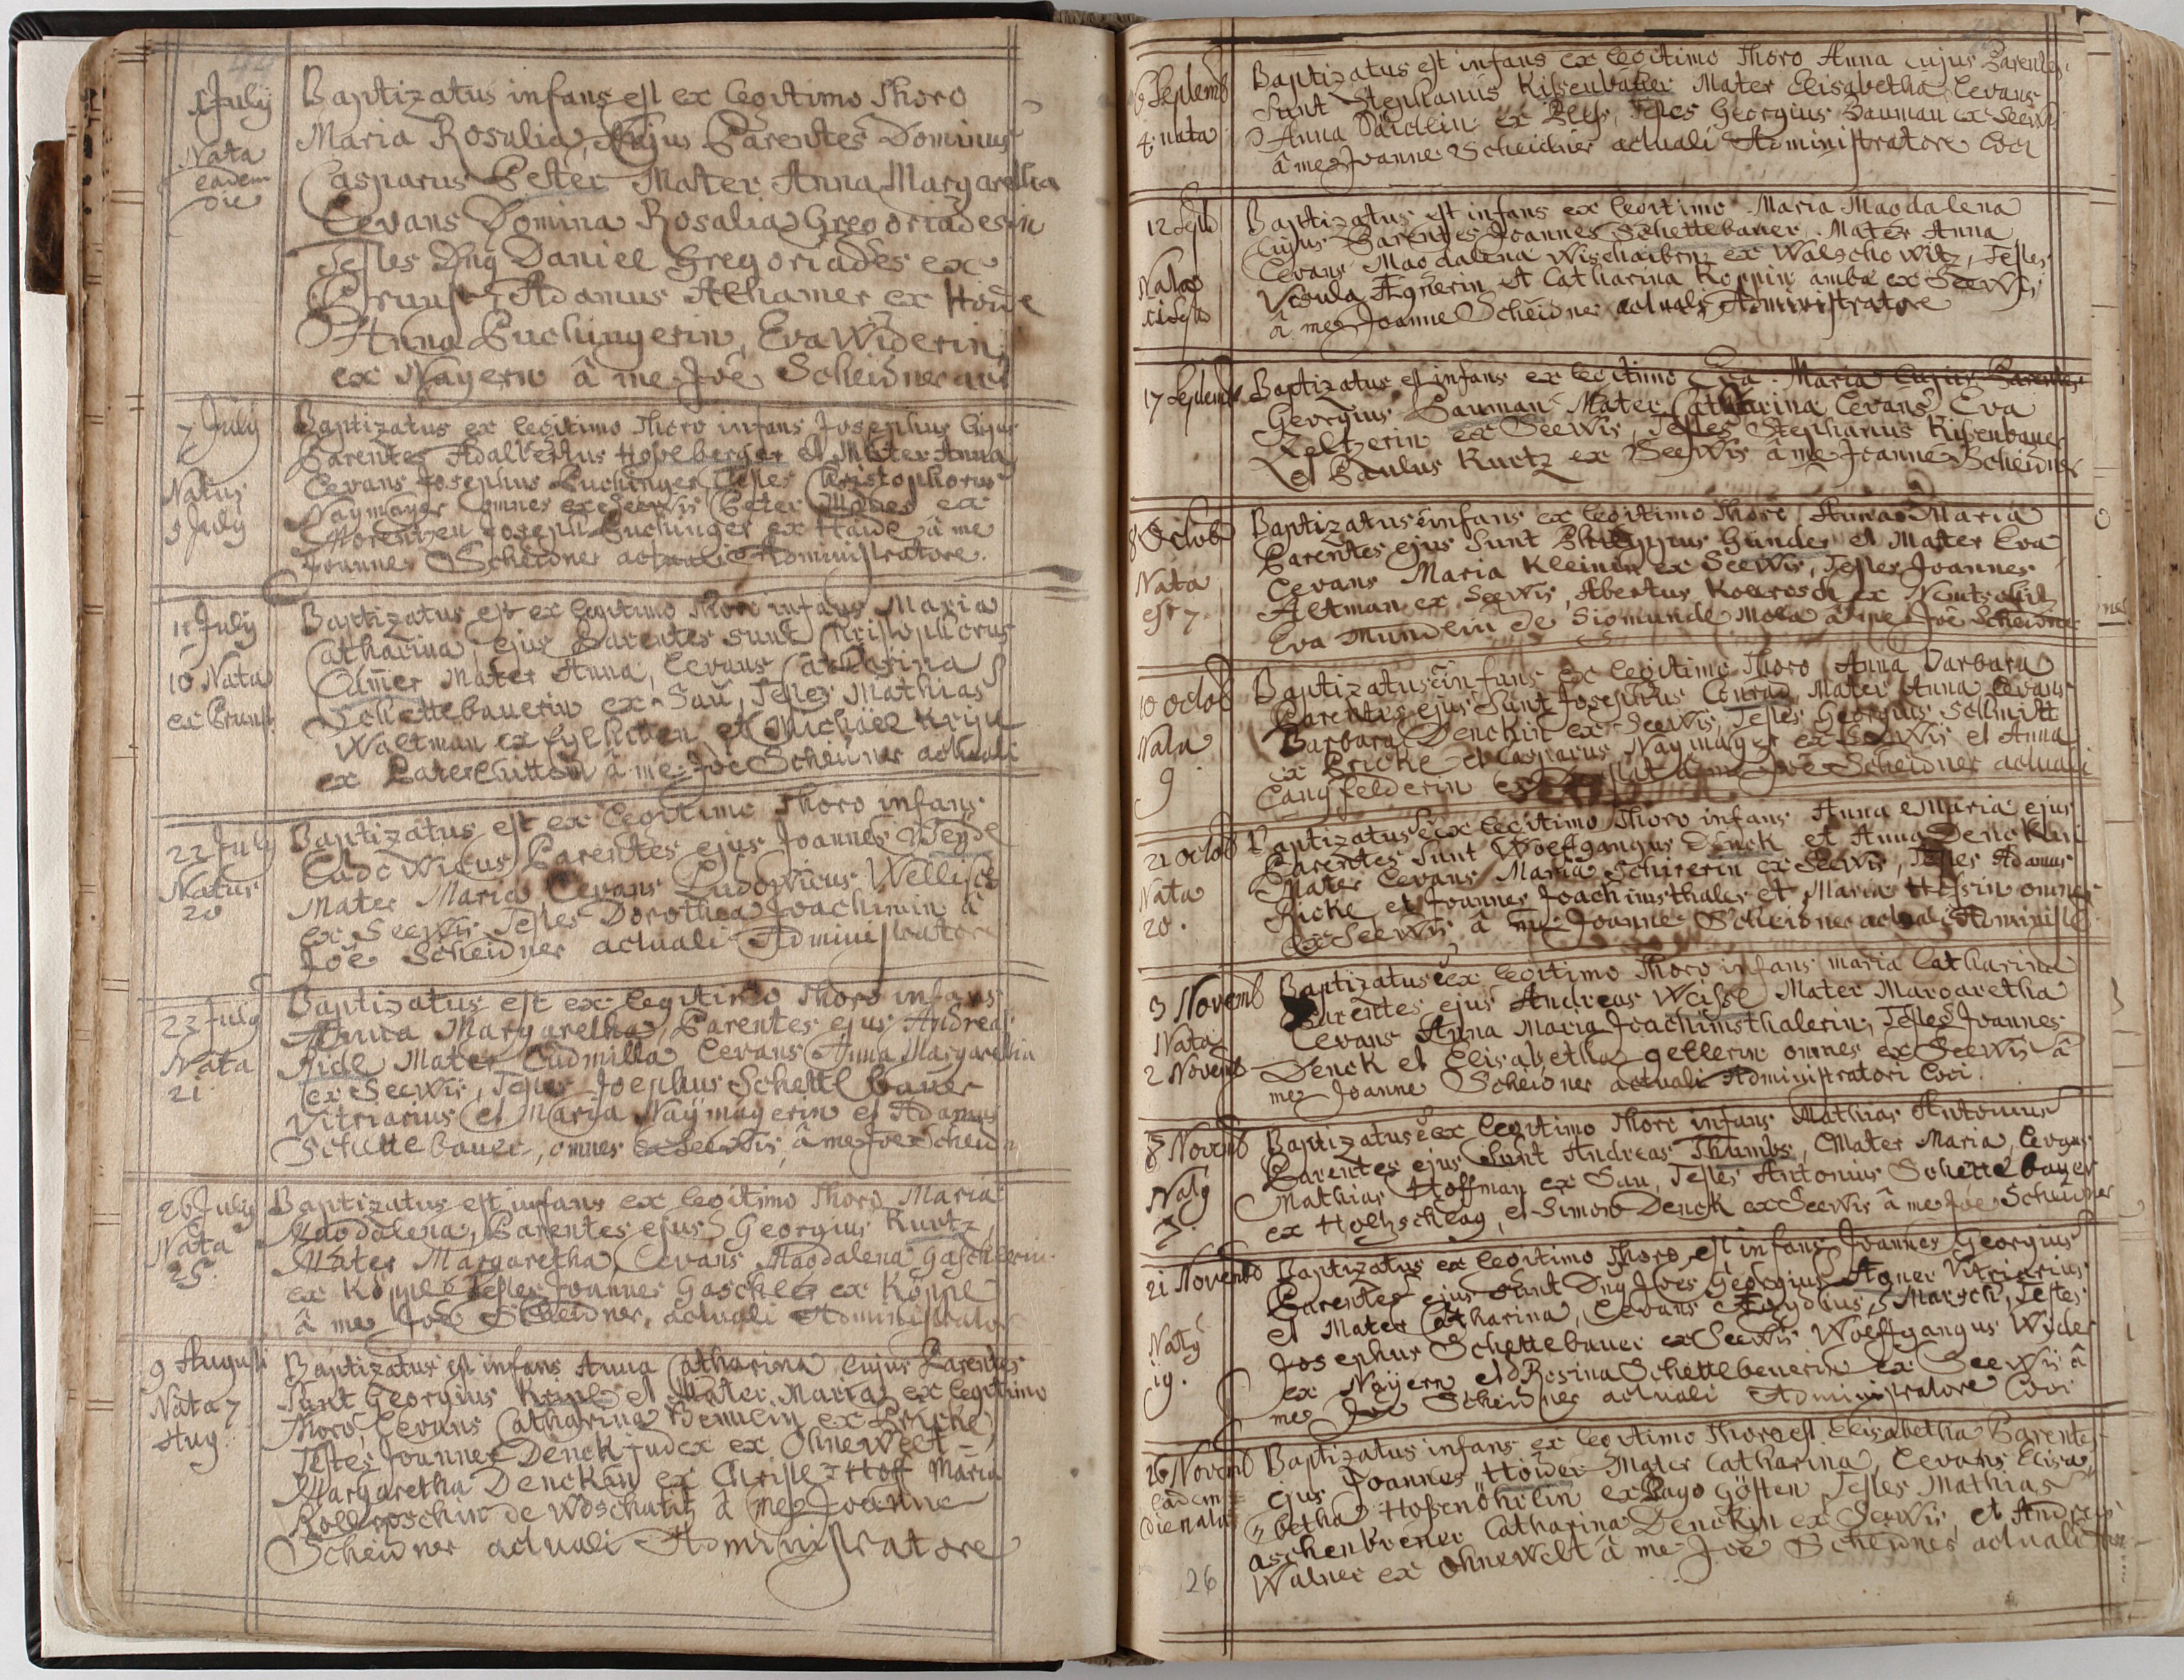 1 July
Nata
eadem
die
Baptizatus infans est ex legitimo Thoro
Maria Rosalia, Cujus Parentes Dominus
Casparus Peller Mater Anna Margaretha
Levans Domina Rosalia Gregoriadesin
Testes Dnus Daniel Gregoriades ex
Brunst, Adamus Athamer ex Höide
Anna Puchingerin, Eva Widerin
ex Nayern â me Joe Scheidner
7 July
Natus
5 July
Baptizatus ex legitimo Thoro infans Josephus Cujus
Parentes Adalbertus Hopfberger et Mater Anna
Levans Josephus Puchinger, Testes Christophorus
Naymayer omnes ex Seewis Peter ex
Joseph Puchinger ex Haide â me
Joanne Scheidner actuali Administratore.
11 July
10 Nata
ex Brunst
Baptizatus est ex legitimo Thoro infans Maria
Catharina, ejus Parentes sunt Christophorus
Mater Anna, Levans Catharina
Schettebauerin ex Sau, Testes Mathias
Waltman ex et Michael
ex â me Joe Scheidner actuali
22 July
Natus
20
Baptizatus est ex legitimo Thoro infans
Ludowicus Parentes ejus Joannes
Mater Maria Levans Ludovicus
ex Seewis Testes Dorothea Joachimin â
Joe Scheidner actuali Administratore
23 July
Nata
21
Baptizatus est ex legitimo Thoro infans
Anna Margaretha, Parentes ejus Andreas
Mater Ludmilla Levans Anna Margaretha
ex Seewis, Testes Joephus Schettlbauer
Vitriarius et Maria Naymayerin et Adamus
Schettebauer, omnes ex Seewis, â me Joe Scheidn
26 July
Nata
25.
Baptizatus est infans ex legitimo Thoro Maria
Magdalena, Parentes ejus Georgius Kurtz,
Mater Margaretha Levans Magdalena Gaschlerin
ex Köppl Testes Joannes Gaschler ex Köppl
â me Joe Scheidner, actuali Administrator
9 Augusti
Nata 7
Aug.
Baptizatus est infans Anna Catharina cujus Parentes
sunt Georgius et Mater Maria ex legitimo
Thoro, Levans Catharina ex Bricke
Testes Joannes Denck judex ex Ohnewelt
Margaretha Denckin ex Christ Hoff Maria
de Woschatitz â me Joanne
Scheidner actuali Administratore
6 Septemb
4 nata
Baptizatus est infans ex legitimo Thoro Anna cujus Parentes
sunt Stephanus Kissenbauer Mater Elisabetha Levans
Anna ex Pless, Testes Georgius Bauman ex Seewis
â me Joanne Scheidner actuali Administratore Loci
12 Septb
Nata
11 Septb
Baptizatus est infans ex legitimo Maria Magdalena
Cujus Parentes Joannes Schettebauer, Mater Anna
Levans Magdalena ex Walschowitz, Testes
Ursula Agnerin et Catharina Koppin ambæ ex Seewis
â me Joanne Scheidner actuali Administratore
17 Septemb
Baptizatus est infans ex legitimo Eva Maria cujus Parentes
Georgius Bauman Mater Catharina Levans Eva
Zeltzerin ex Seewis, Testes Stephanus Kissenbauer
et Paulus Kurtz ex Seewis â me Joanne Scheidner
8 Octob
Nata
est 7.
Baptizatus infans ex legitimo Thoro Anna Maria
Parentes ejus sunt Philippus Gunder et Mater Eva
Levans Maria Kleinin ex Seewis, Testes Joannes
Altman ex Seewis, Abertus Kolrosch ex
Eva Mundlin de Sigmunds Mola â me Joe Scheidner
10 octob
Nata
9
Baptizatus infans ex legitimo Thoro Anna Barbara
Parentes ejus sunt Josephus Conrad, Mater Anna Levans
Barbara Denckin ex Seewis, Testes Georgius Schmitt
ex Bricke et Casparus Naymayer ex Seewis et Anna
Langfelderin ex â me Joe Scheidner actuali
21 octob
Nata
20.
Baptizatus ex legitimo Thoro infans Anna Maria ejus
Parentes sunt Wolffgangus Denck et Anna Denckin
Mater Levans Maria Schirerin ex Seewis, Testes Adamus
Ricke, et Joannes Joachimsthaler et Maria Hessin omnes
ex Seewis, â me Joanne Scheidner actuali Administ
3 Novemb
Nata
2 Novemb
Baptizatus ex legitimo Thoro infans Maria Catharina
Parentes ejus Andreas Weisse Mater Margaretha
Levans Anna Maria Joachimsthalerin, Testes Joannes
Denck et Elisabetha gellerin omnes ex Seewis â
me Joanne Scheidner actuali Administratori Loci.
8 Novemb
Natus
7.
Baptizatus ex legitimo Thoro infans Mathias Antonius
Parentes ejus sunt Andreas Thumbs, Mater Maria, Levans
Mathias Hoffman ex Sau, Testes Antonius Schettebauer
ex Holtzschlag, et Simon Denck ex Seewis â me Joe Scheidner
21 Novemb
Natus
19.
Baptizatus ex legitimo Thoro est infans Joannes Georgius
Parentes ejus sunt Dnus Joes Georgius Agner Vitriarius
et Mater Catharina, Levans Ægydius Marsch, Testes
Josephus Schettebauer ex Seewis Wolffgangus Wyder
ex Nayern et Rosina Schettebeuerin ex Seewis â
me Joe Scheidner actuali Administratore Loci
26 Novemb
eadem
die nata
Baptizatus infans ex legitimo Thoro est Elisabetha Parentes
ejus Joannes Höwer Mater Catharina, Levans Elisa
betha Hossenöhrlin ex Pago Göften Testes Mathias
aschenbrener Catharina Denckin ex Seewis, et Andreas
Walner ex Ohnewelt â me Joe Scheidner actuali
26